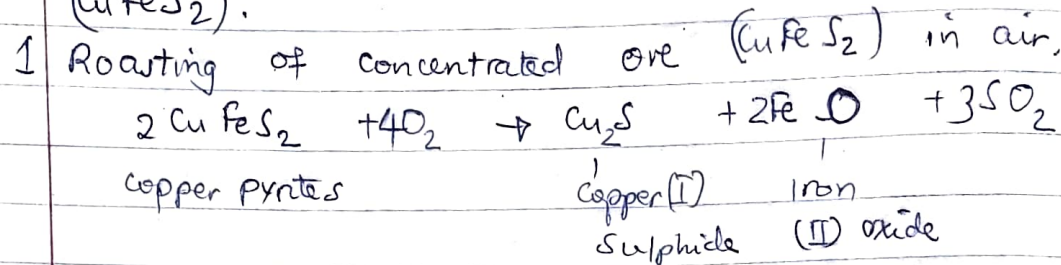 (CuFeS2).
1 Roasting of concentrated ore (CuFeS2) in air.
2 CuFeS2 +4O2 → Cu2S + 2FeO +3SO2
copper pyrites Copper(I) Iron
Sulphide (II) oxide